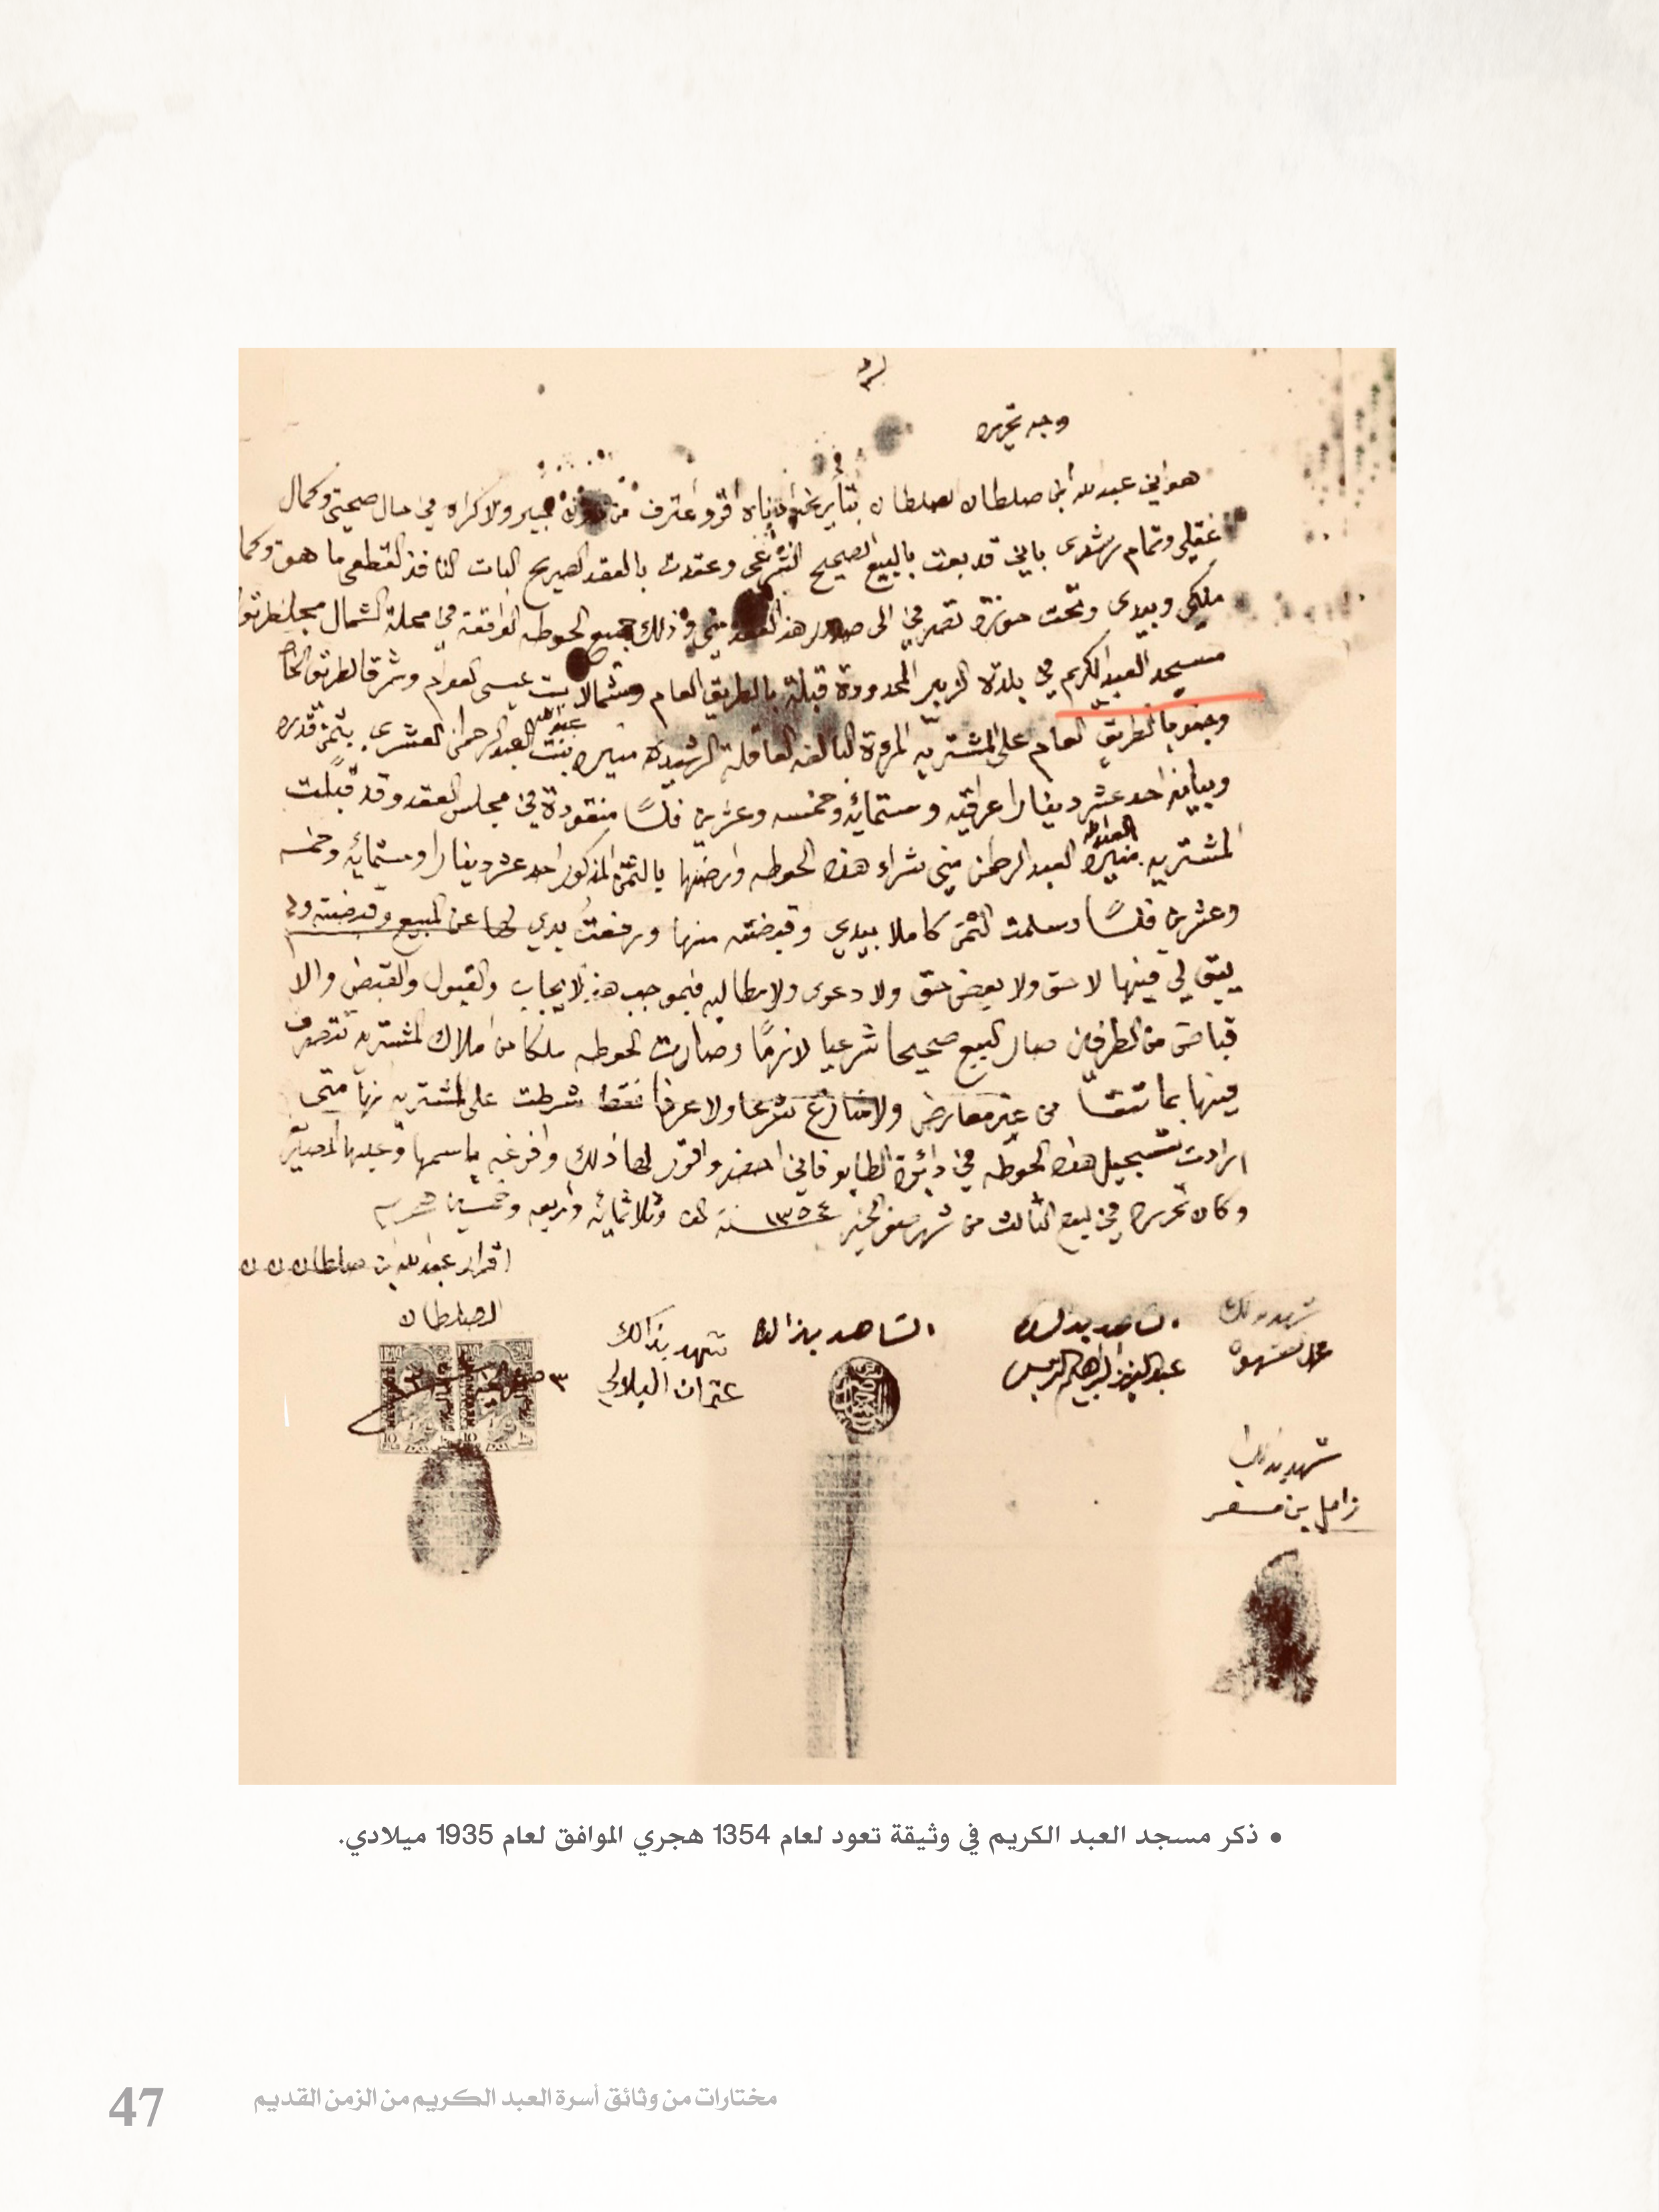 وجه تحريره
هو اني عبدالله ابن صلطان الصلطان بتأريخ ادناه اقر واعترف من دون جبير ولا كراه في حال صحتي وكمال
عقلي وتمام رشدى باني قد بعت بالبيع الصحيح الشرعى وعقدت بالعقد الصريح البات النافذ القطعى ما هو
ملكي وبيدى وتحت حوزة تصرفي الى صدور هذا العقد مني وذلك جميع الحوطه الواقعة في محلة الشمال
مسجد العبد الكريم في بلدة الزبير المحدودة قبلة بالطريق العام وشمالا بيت عيسى العوام وشرقا الطريق الخاص
وجنوبا الطريق العام على المشتريه المرءة البالغه العاقلة الرشيدة منيره بنت عبدالله العبدالرحمن العشرى بثمن قدره
وبيانه احد عشر دينارا عراقيه وستمائه وخمسه وعشرين فلسًا منقودة في مجلس العقد وقد قبلت
المشتريه منيرة العبدالله العبدالرحمن مني شراء هذه الحوطه وارضها بالثمن المذكور احد عشر دينارا وستمائه وخمسه
وعشرين فلسًا وسلمت الثمن كاملا بيدي وقبضته منها ورفعت يدي لها عن المبيع وقبضته ولم
يبق لي فيها لا حق ولا بعض حق ولا دعوى ولا مطالبه فبموجب هذا الايجاب والقبول والقبض والا
قباض من الطرفين صار البيع صحيحا شرعيا لازمًا وصارت الحوطه ملكا من املاك المشتريه تتصرف
فيها بما تشا من غير معارض ولا منازع شرعا ولا عرفا فقط شرطت على المشتريه انها متى
ارادت تسجيل هذه الحوطه في دائرة الطابو فاني احضر واقرر لها ذلك وافرغه باسمها وعليها المصاريف
وكان تحريره في اليوم الثالث من شهر صفر الخير ١٣٥٤ سنة الف وثلاثمائه واربعه وخمسين هجريه
اقرار عبدالله بن صلطان
الصلطان
شهد بذلك
الشاهد بذالك
عبدالعزيز ابراهيم
الشاهد بذالك
شهد بذالك
عثمان
٣ صفر الخير
IRAQ
10
10
شهد بذلك
زامل بن مسفر
• ذكر مسجد العبد الكريم في وثيقة تعود لعام 1354 هجري الموافق لعام 1935 ميلادي.
مختارات من وثائق أسرة العبد الكريم من الزمن القديم
47